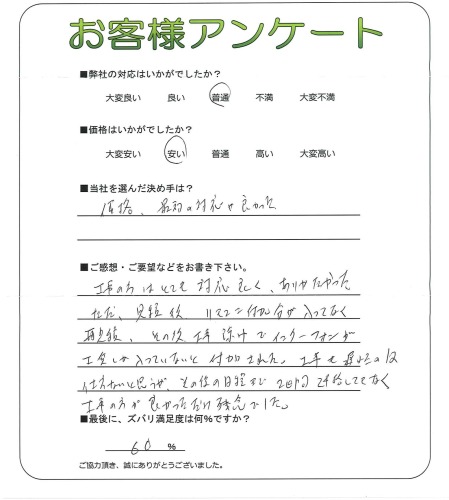 お客様アンケート
■弊社の対応はいかがでしたか?
大変良い 良い 普通 不満 大変不満
■価格はいかがでしたか?
大変安い 安い 普通 高い 大変高い
■当社を選んだ決め手は?
価格、最初の対応が良かった
■ご感想・ご要望などをお書き下さい。
工事の方はとても対応良く、ありがたかった
ただ、見積後 リストに付加分が入ってなく
再見積、その後工事 途中でインターフォンが
工事しか入っていないと付加された。工事も
仕方ないと思うが、その他の日程まで
工事の方が良かっただけ残念でした。
■最後に、ズバリ満足度は何%ですか?
60 %
ご協力頂き、誠にありがとうございました。